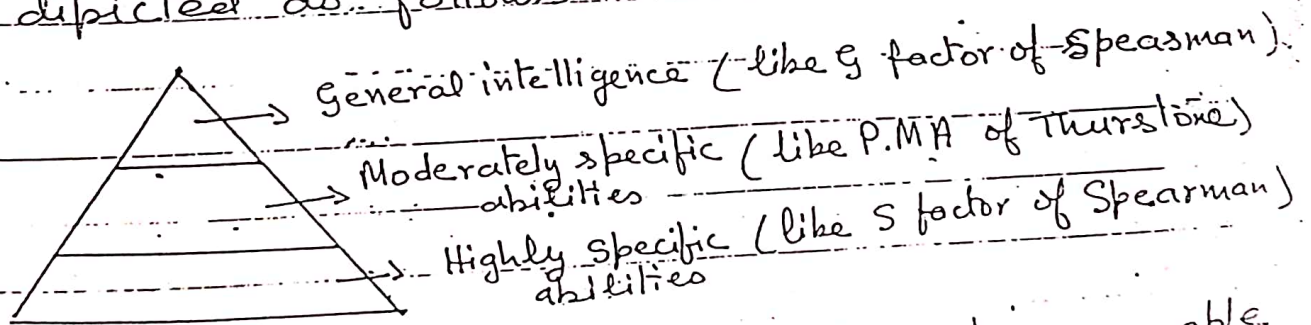 depicted as follows
General intelligence (like G factor of Spearman).
Moderately specific (like P.M.A of Thurstone)
abilities
Highly specific (like S factor of Spearman)
abilities
able